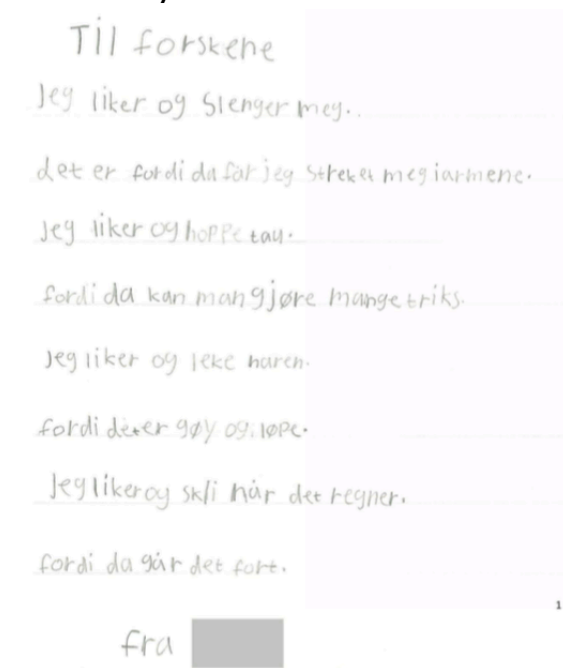 Til forskene
Jeg liker og Slenger meg.
det er fordi da får jeg streket meg iarmene.
Jeg liker og hoppe tau.
fordi da kan man gjøre mange triks.
Jeg liker og leke haren.
fordi det er gøy og løpe.
Jeg liker og skli når det regner.
fordi da går det fort.
1
fra